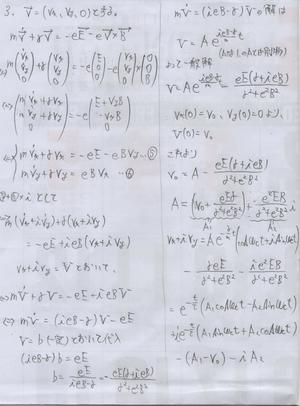 3. v⃗ = (vx, vy, 0) とする。
m v⃗̇ + γ v⃗ = -eE⃗ - e v⃗ × B⃗
m (v̇x, v̇y, 0) + γ (vx, vy, 0) = -e (E, 0, 0) - e (vx, vy, 0) × (0, 0, B)
⇔ (m v̇x + γ vx, m v̇y + γ vy, 0) = -e (E + vyB, -vxB, 0)
⇔ m v̇x + γ vx = -eE - eB vy …⑤
m v̇y + γ vy = eB vx …⑥
⑤+⑥×i として
m(v̇x + i v̇y) + γ(vx + i vy)
= -eE + ieB(vx + i vy)
vx + i vy = V とおいて、
⇔ m V̇ + γ V = -eE + ieB V
⇔ m V̇ = (ieB - γ) V - eE
V = b (一定) とおいて代入
(ieB - γ) b = eE
b = eE / (ieB - γ) = - eE(γ + ieB) / (γ² + e²B²)
m V̇ = (ieB - γ) V の解は
V = A e^{(ieB-γ)/m t}
よって一般解
V = A e^{(ieB-γ)/m t} - eE(γ + ieB) / (γ² + e²B²)
vx(0) = v₀, vy(0) = 0 より、
V(0) = v₀
これより
v₀ = A - eE(γ + ieB) / (γ² + e²B²)
A = (v₀ + eEγ / (γ² + e²B²)) + e²EB / (γ² + e²B²) i
A₁ A₂
vx + i vy = A e^{-γ/m t} (cos ωct + i sin ωct)
- γeE / (γ² + e²B²) - i e²EB / (γ² + e²B²)
= e^{-t/τ} (A₁ cos ωct - A₂ sin ωct)
+ i e^{-t/τ} (A₁ sin ωct + A₂ cos ωct)
- (A₁ - v₀) - i A₂